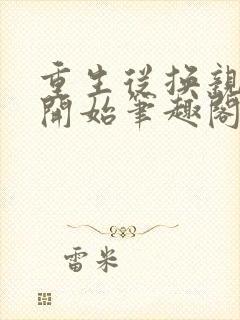 重生從換親
開始筆趣閣
雷米